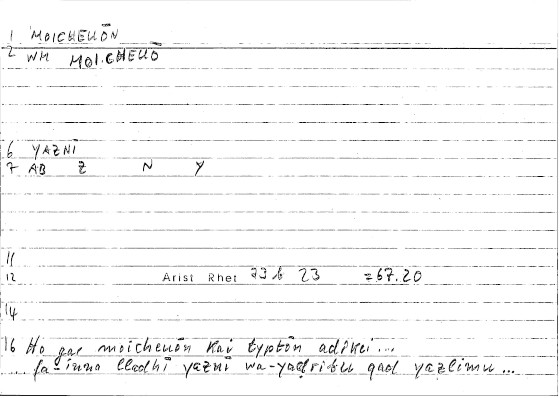 1 MOICHEUŌN
2 WM MOI.CHEUŌ
6 YAZNĪ
7 AB Z N Y
11
12 Arist Rhet 73 b 23 =67.20
14
16 Ho gar moicheuōn kai typtōn adikei...
... fa-inna lladhī yaznī wa-yaḍribu qad yazlimu ...